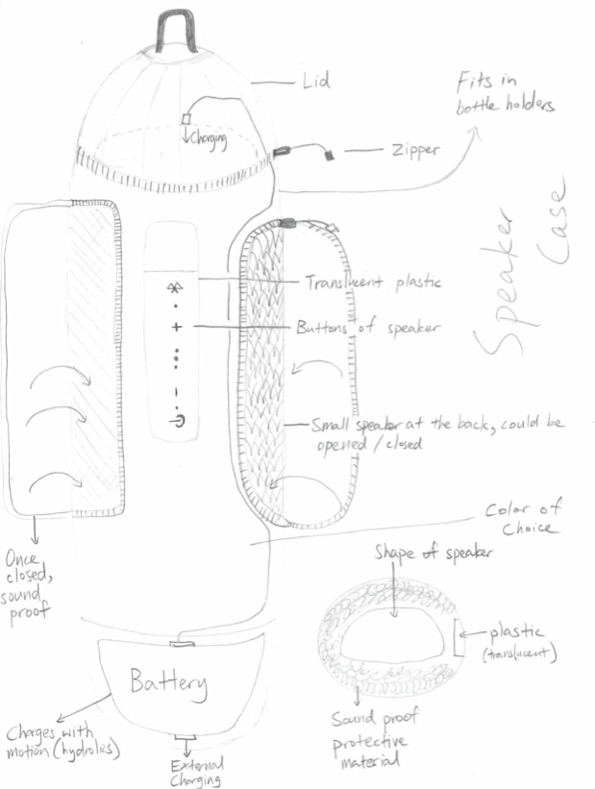 Lid
Charging
Zipper
Fits in
bottle holders
Speaker
Case
Translucent plastic
Buttons of speaker
Small speaker at the back, could be
opened / closed
Color of
Choice
Once
closed,
sound
proof
Shape of speaker
plastic
(translucent)
Sound proof
protective
material
Battery
Charges with
motion (hydrolics)
External
Charging